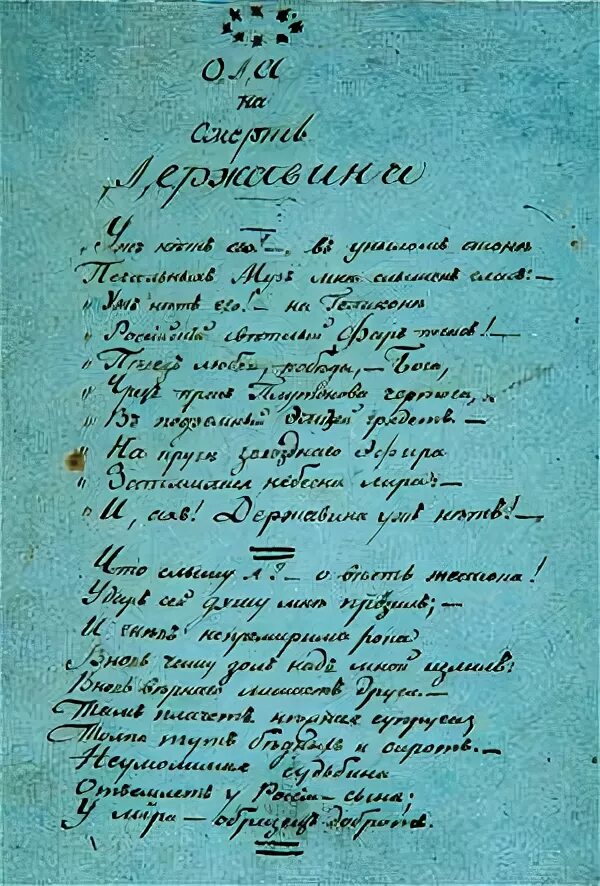 ОДА
на
Смерть
Державина
I.
Ужъ нѣтъ его! въ уныломъ стонѣ
Печальныхъ Музъ мнѣ слышенъ гласъ: —
" Ужъ нѣтъ его! — на Геликонѣ
" Россійскій свѣтлый
" Пѣвецъ любви, побѣды, — Бога,
" Чрезъ прагъ Плутонова чертога,
" Въ подземный грядетъ —
" На звѣзднаго Эфира
" небесна лира —
" И, ахъ! Державина ужъ нѣтъ! —
Что слышу я? — о вѣсть !
Ударъ сей душу мнѣ пронзилъ; —
И непремирима рока
Вновь чашу золъ надъ мной излилъ:
Вновь вѣрнаго друга. —
Тамъ плачетъ нѣжная супруга;
Толпа тутъ бѣдныхъ и сиротъ. —
Неумолимая судьбина
Отъемлетъ у Россіи — сына;
У міра — образецъ добротъ.